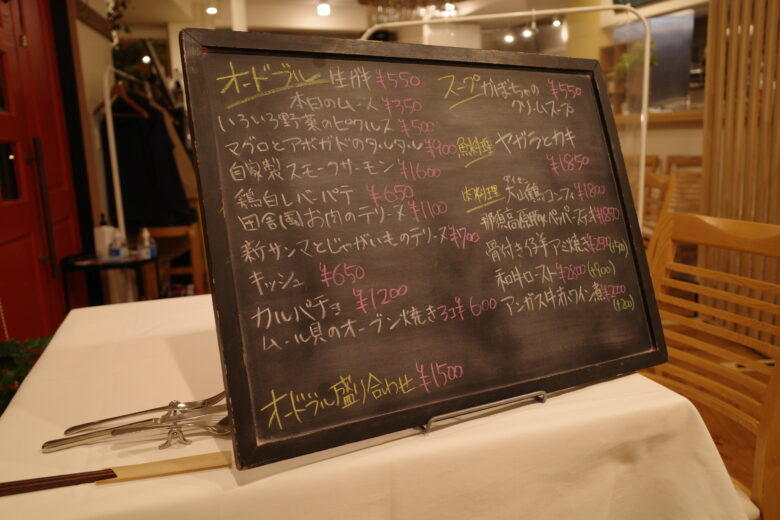 オードブル 生ガキ ¥550
本日のムース ¥350
いろいろ野菜のピクルス ¥500
マグロとアボガドのタルタル ¥900
自家製スモークサーモン ¥1600
鶏白レバーパテ ¥650
田舎風お肉のテリーヌ ¥1100
新サンマとじゃがいものテリーヌ ¥700
キッシュ ¥650
カルパチョ ¥1200
ムール貝のオーブン焼き 3コ ¥600
オードブル盛り合わせ ¥1500
スープ かぼちゃの ¥550
クリームスープ
魚料理 ヤガラとカキ
¥1850
肉料理 大山鶏コンフィ ¥1800
ダイセン
那須高原豚 ペッパーステーキ ¥1850
骨付き仔羊アミ焼き
和牛ロースト ¥2800 (+900)
アンガス牛赤ワイン煮 ¥2000
(+200)